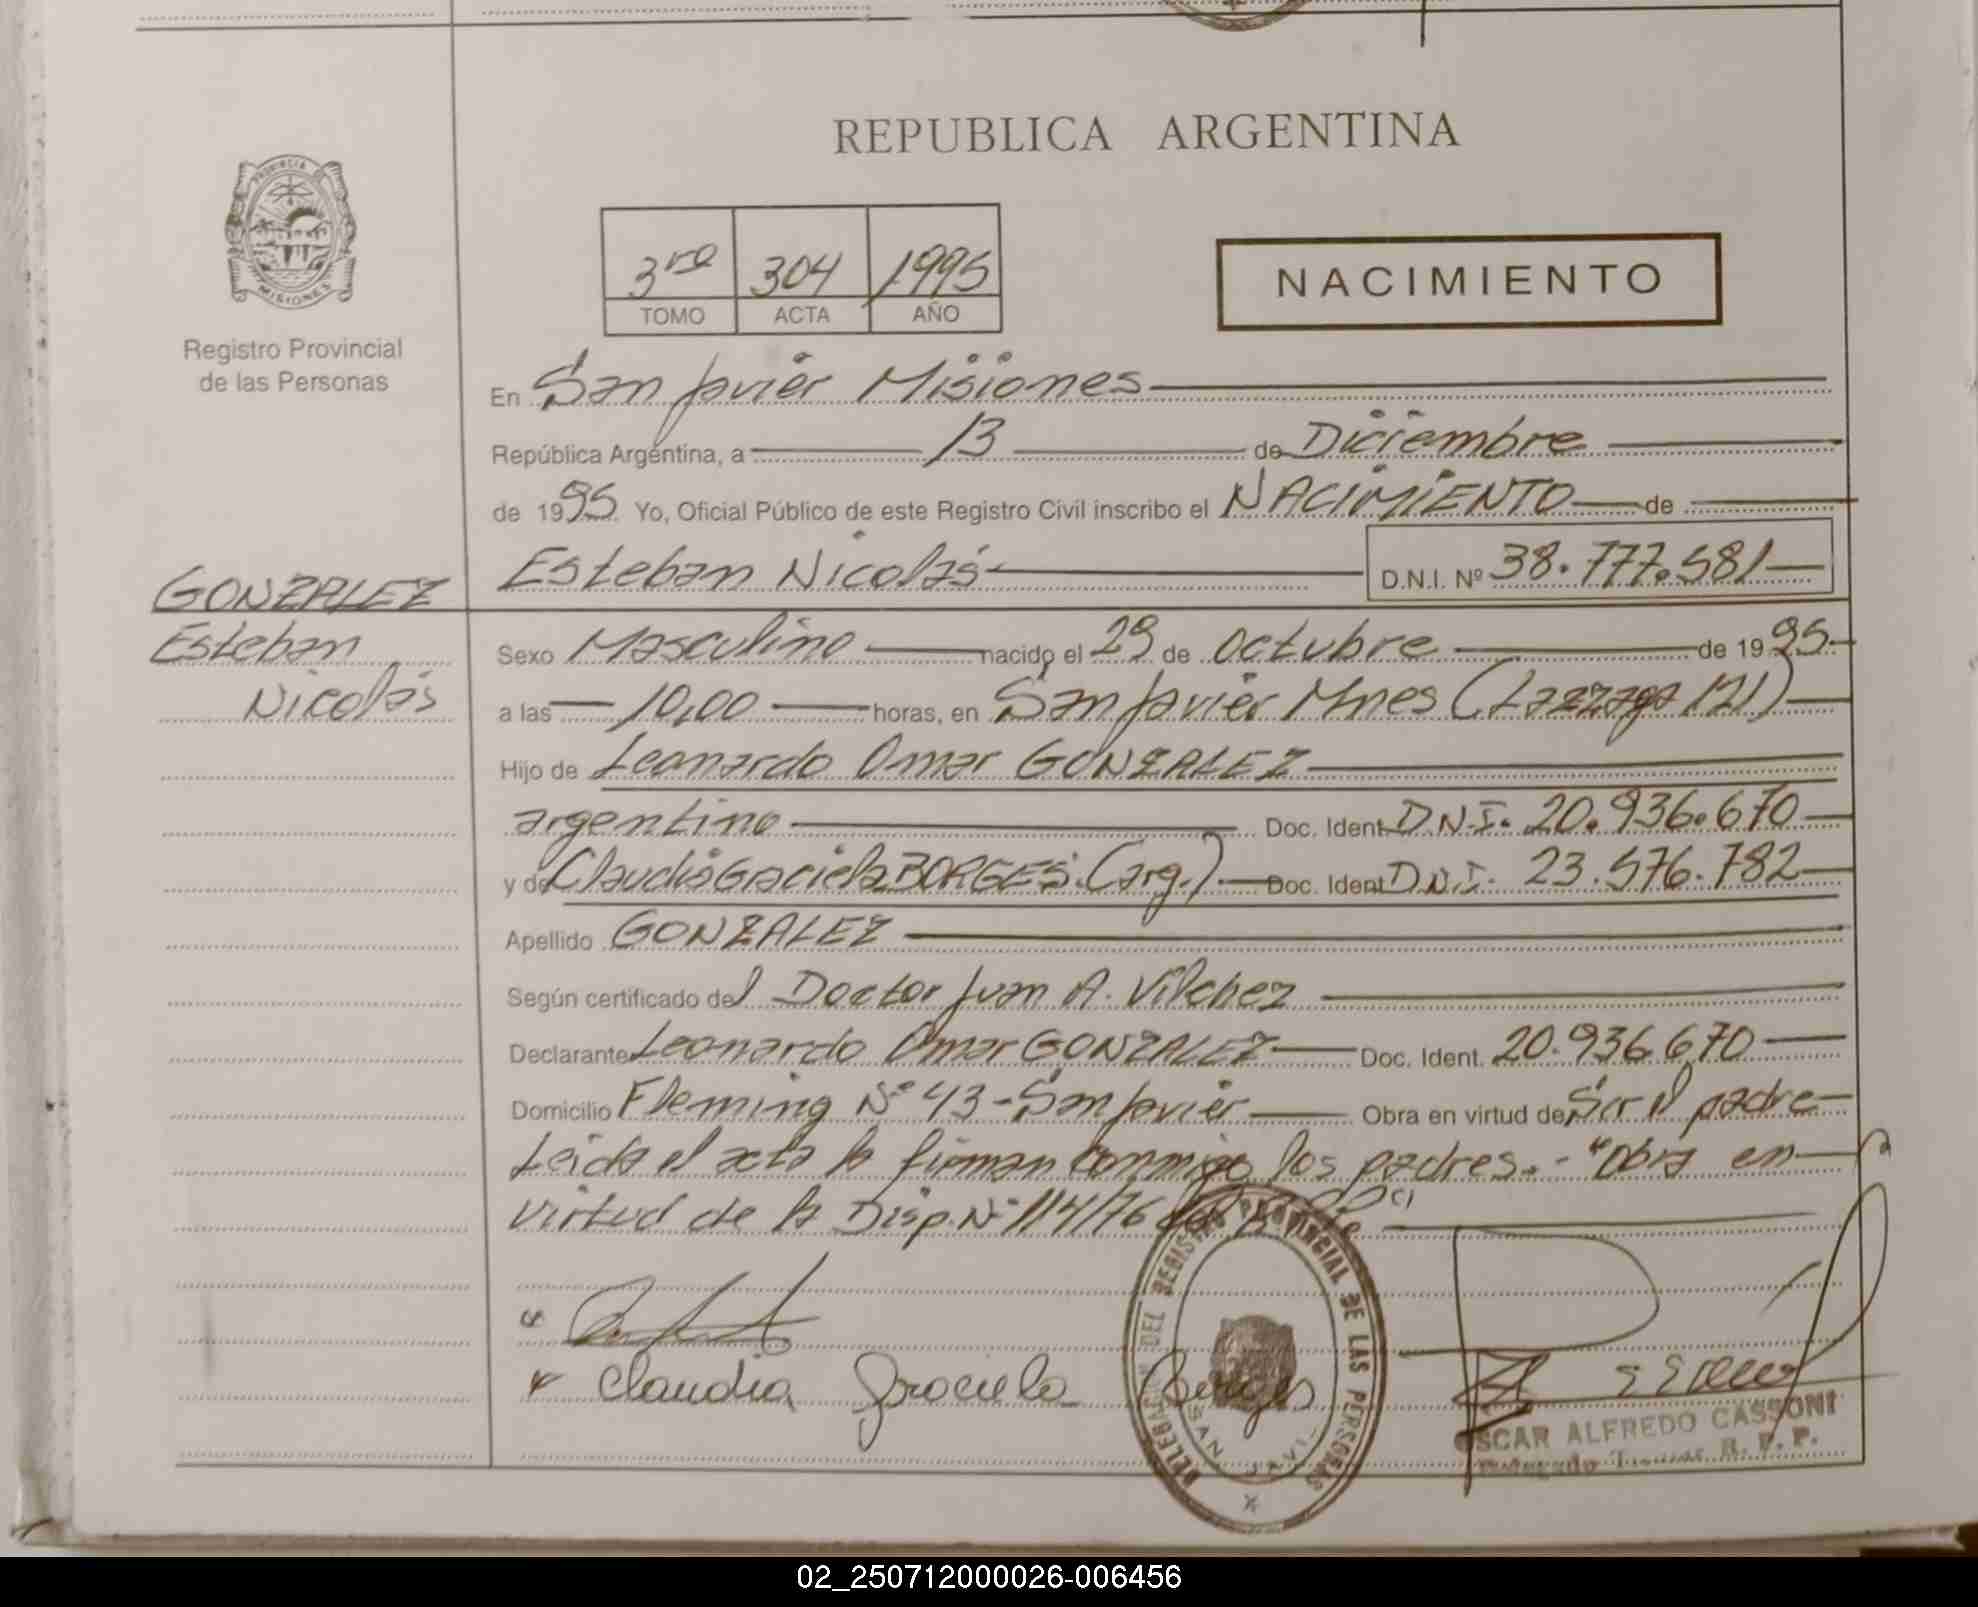 REPUBLICA ARGENTINA
PROVINCIA DE MISIONES
Registro Provincial
de las Personas
3ro 304 1995
TOMO ACTA AÑO
NACIMIENTO
En San Javier Misiones
República Argentina, a 13 de Diciembre
de 1995 Yo, Oficial Público de este Registro Civil inscribo el NACIMIENTO de
Esteban Nicolás D.N.I. Nº 38.777.581
GONZALEZ
Esteban
Nicolás
Sexo Masculino nacido el 29 de Octubre de 1995
a las 10,00 horas, en San Javier Mnes (Lazzaga 121)
Hijo de Leonardo Omar GONZALEZ
argentino Doc. Ident. D.N.I. 20.936.670
y de Claudia Graciela BORGES (arg.) Doc. Ident. D.N.I. 23.576.782
Apellido GONZALEZ
Según certificado del Doctor Juan A. Vilchez
Declarante Leonardo Omar GONZALEZ Doc. Ident. 20.936.670
Domicilio Fleming Nº 43 - San Javier Obra en virtud de Ser el padre
Leida el acta la firman conmigo los padres.- "Obra en
virtud de la Disp. Nº 114/76
Claudia Graciela Borges
DELEGACION DEL REGISTRO PROVINCIAL DE LAS PERSONAS
SAN JAVI
OSCAR ALFREDO CASSONI
Delegado Titular R. P. P.
02_250712000026-006456